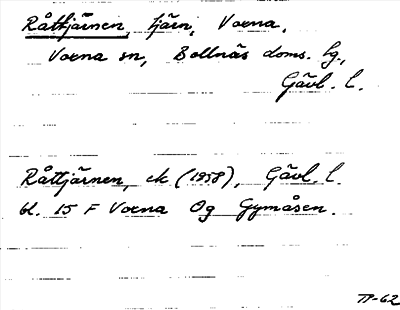 Råttjärnen, tjärn, Voxna,
Voxna sn, Bollnäs doms. bg.,
Gävl. l.
Råttjärnen, ek (1958), Gävl. l.
bl. 15 F Voxna Og Gymåsen.
TP-62